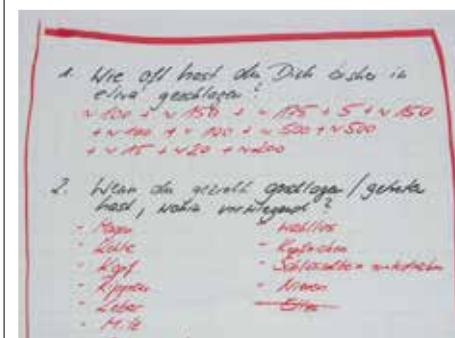 1. Wie oft hast du Dich bisher in
etwa geschlagen?
~100 + ~150 + ~175 + 5 + ~150
+ ~100 + ~100 + ~500 + ~500
+ ~15 + ~20 + ~200
2. Wenn du gezielt geschlagen / getreten
hast, wohin vorwiegend?
- Magen
- Kehle
- Kopf
- Rippen
- Leber
- Milz
- wahllos
- Schlüsselbein
- Nieren
- Eier